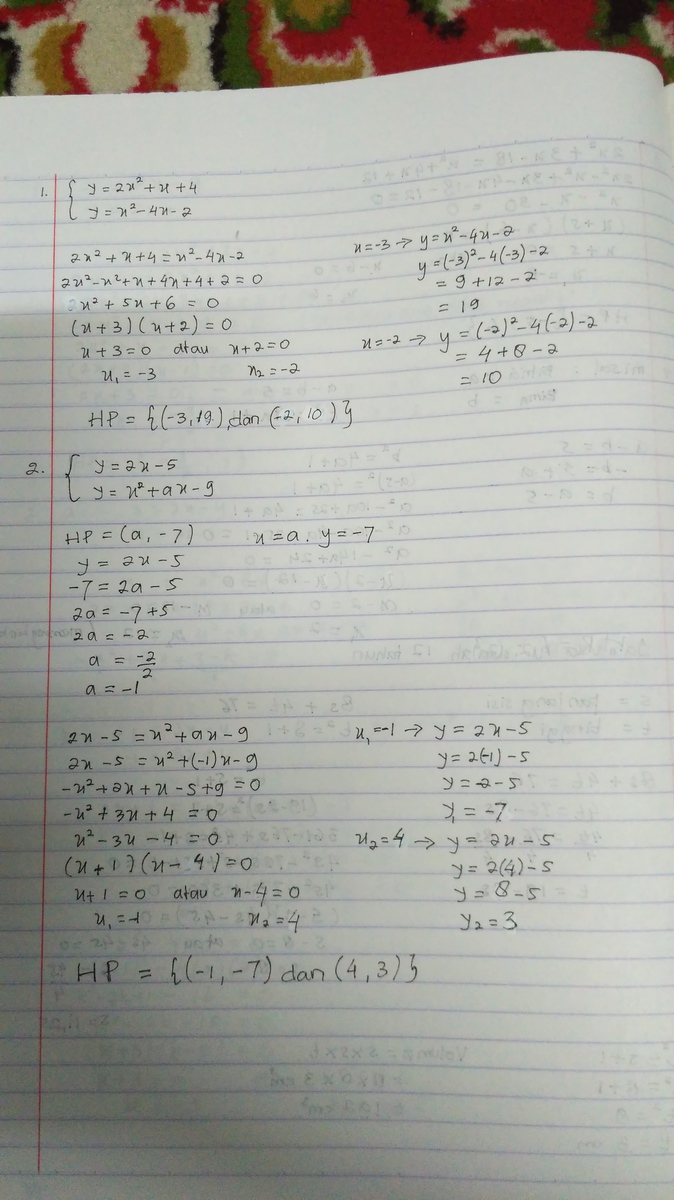 1. { y = 2x² + x + 4
y = x² - 4x - 2
2x² + x + 4 = x² - 4x - 2
2x² - x² + x + 4x + 4 + 2 = 0
x² + 5x + 6 = 0
(x + 3) (x + 2) = 0
x + 3 = 0 atau x + 2 = 0
x₁ = -3 x₂ = -2
x = -3 → y = x² - 4x - 2
y = (-3)² - 4(-3) - 2
= 9 + 12 - 2
= 19
x = -2 → y = (-2)² - 4(-2) - 2
= 4 + 8 - 2
= 10
HP = {(-3, 19), dan (-2, 10)}
2. { y = 2x - 5
y = x² + ax - 9
HP = (a, -7) x = a. y = -7
y = 2x - 5
-7 = 2a - 5
2a = -7 + 5
2a = -2
a = -2/2
a = -1
2x - 5 = x² + ax - 9
2x - 5 = x² + (-1)x - 9
-x² + 2x + x - 5 + 9 = 0
-x² + 3x + 4 = 0
x² - 3x - 4 = 0
(x + 1) (x - 4) = 0
x + 1 = 0 atau x - 4 = 0
x₁ = -1 x₂ = 4
x₁ = -1 → y = 2x - 5
y = 2(-1) - 5
y = -2 - 5
y₁ = -7
x₂ = 4 → y = 2x - 5
y = 2(4) - 5
y = 8 - 5
y₂ = 3
HP = {(-1, -7) dan (4, 3)}